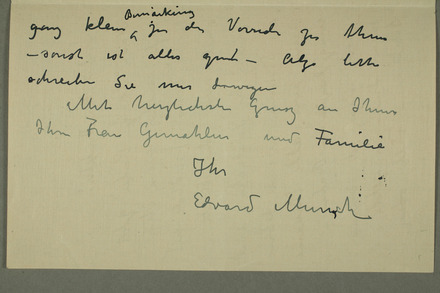 Bemärkung
ganz klein zu der Vorrede zu Ihnen
– sonst ist alles gut – Also bitte
schreiben Sie mir
Mit herzlichste Grusz an Ihnen
Ihre Frau Gemahlin und Familie
Ihr
Edvard Munch